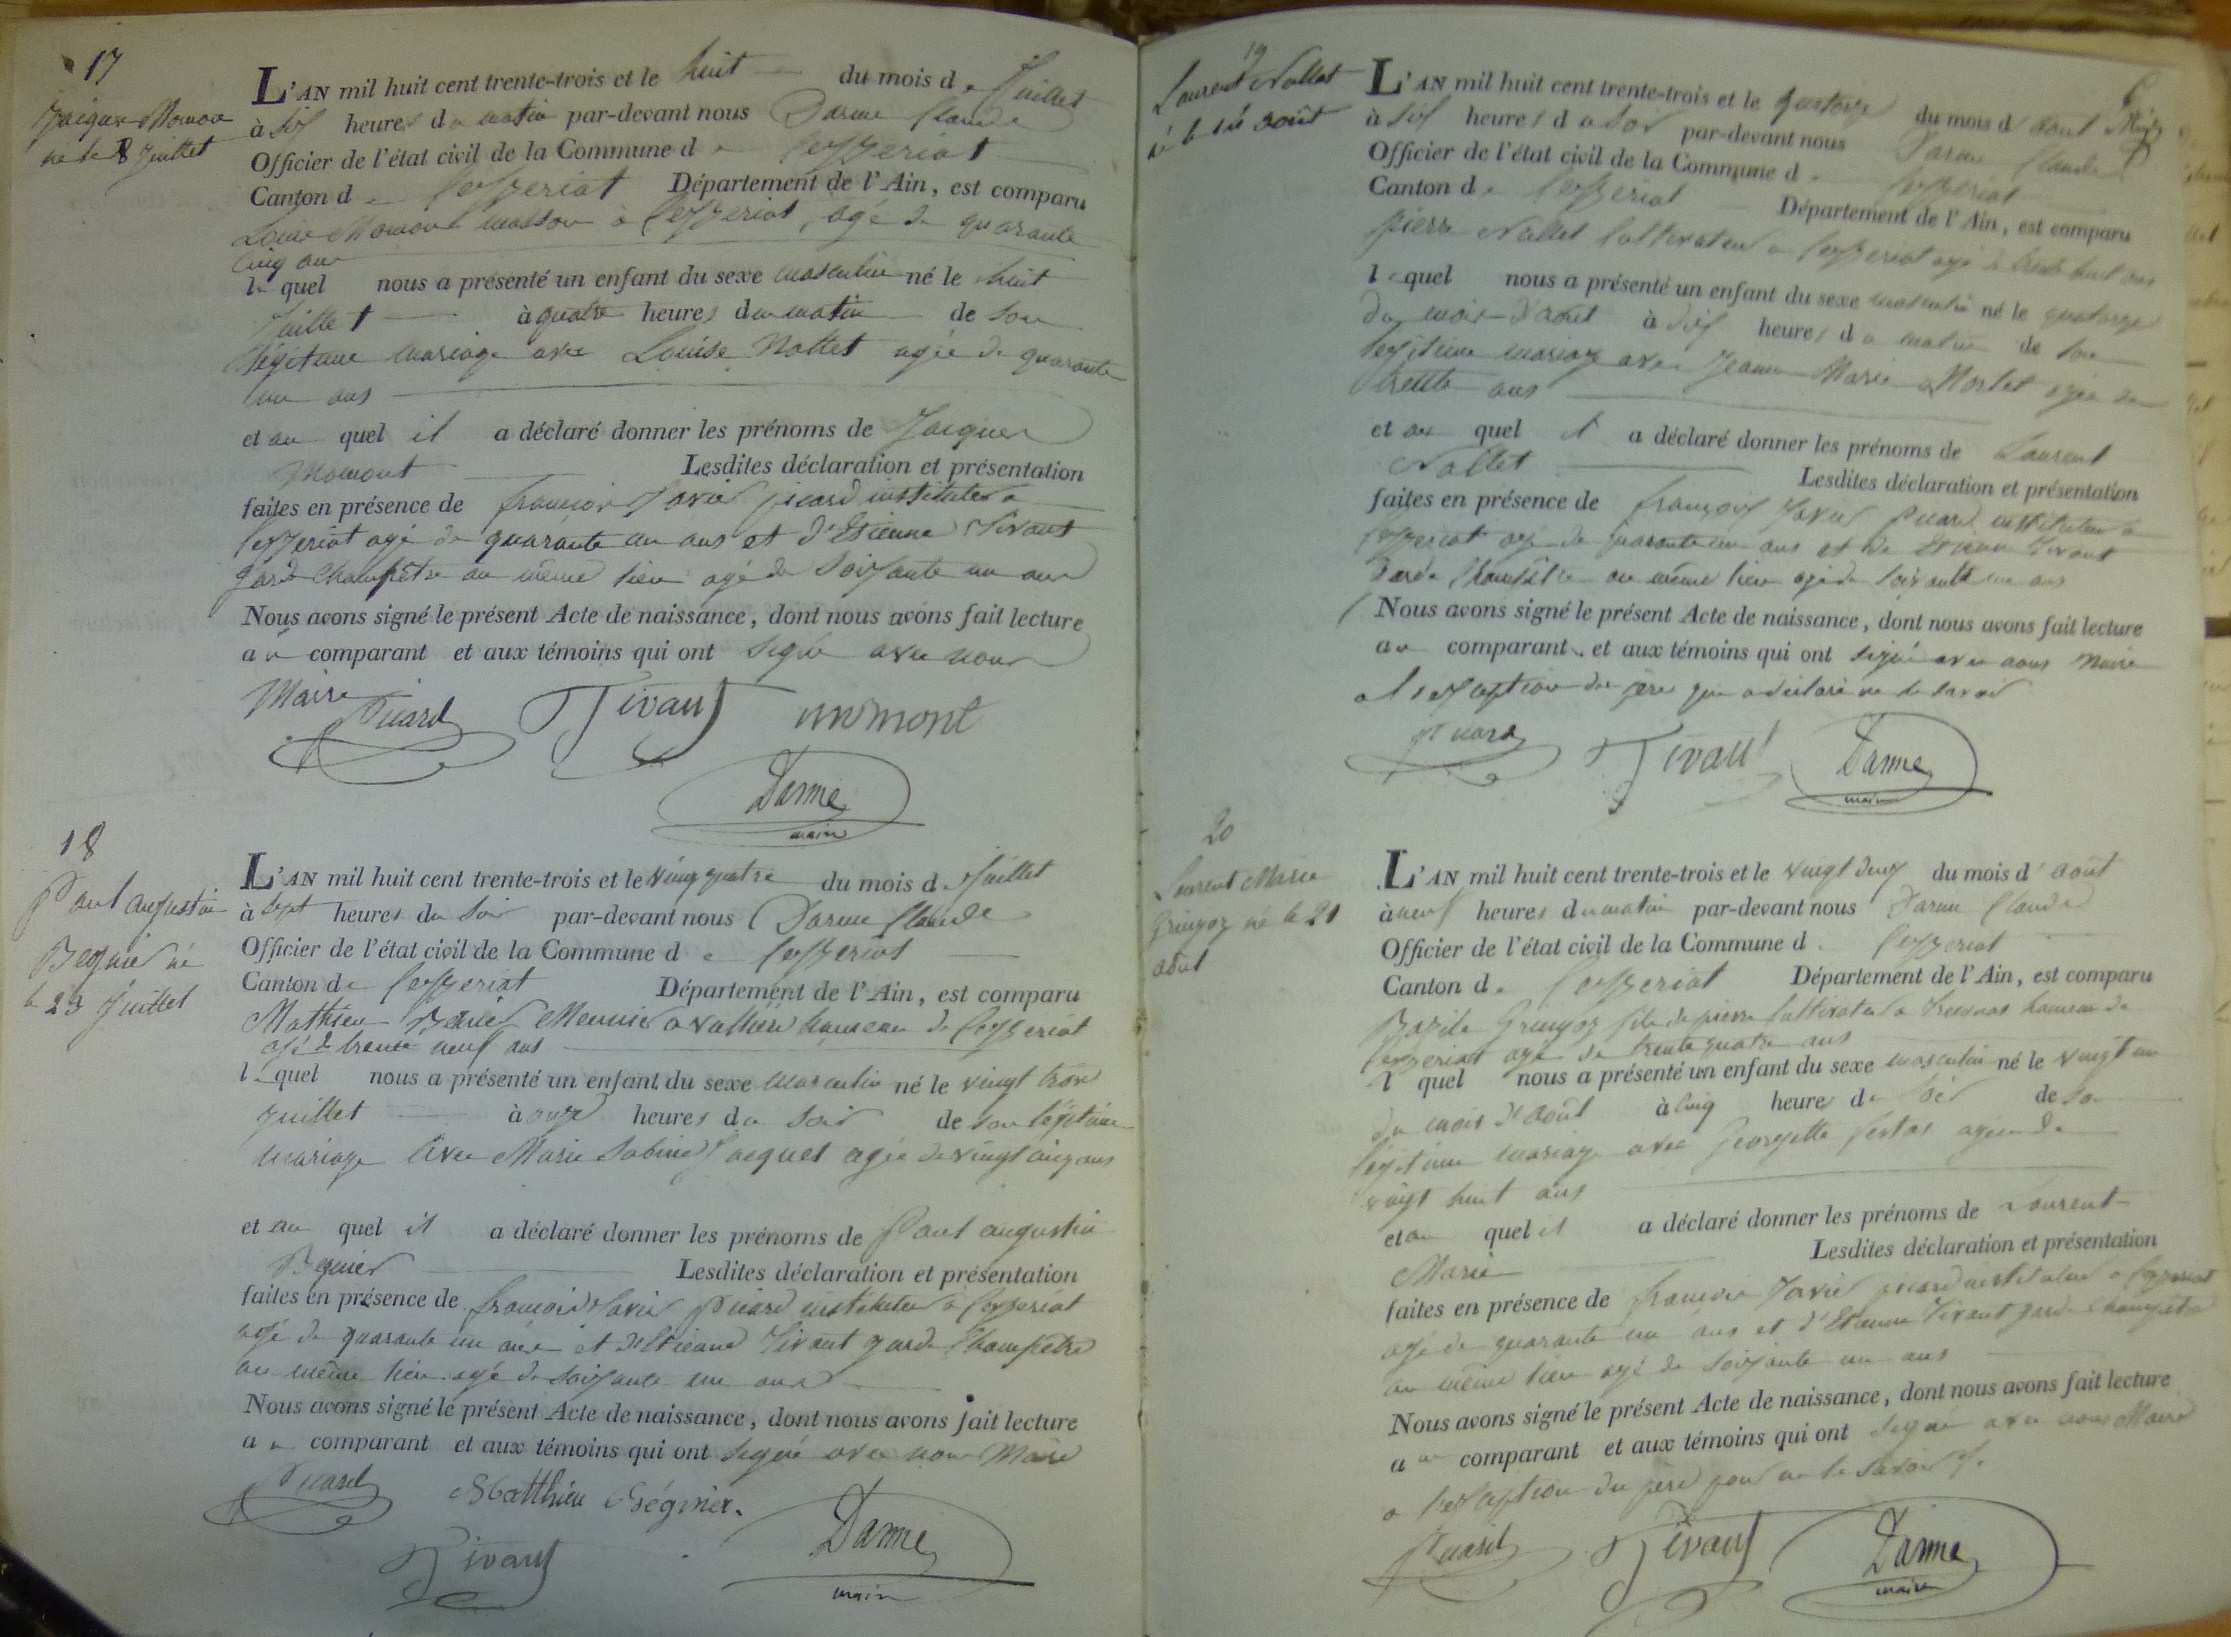 17
Jacques Momon
né le 8 Juillet
L'AN mil huit cent trente-trois et le huit du mois de Juillet
à dix heures du matin par-devant nous Darme Claude
Officier de l'état civil de la Commune de Ceyzeriat
Canton de Ceyzeriat Département de l'Ain, est comparu
Louis Momont masson à Ceyzeriat, agé de quarante
cinq ans
lequel nous a présenté un enfant du sexe masculin né le huit
Juillet à quatre heures du matin de son
légitime mariage avec Louise Nallet agée de quarante
un ans
et au quel il a déclaré donner les prénoms de Jacques
Momont Lesdites déclaration et présentation
faites en présence de françois Xavier picard instituteur a
Ceyzeriat agé de quarante un ans et d'Etienne Tivant
garde Champêtre au même lieu agé de soixante un ans
Nous avons signé le présent Acte de naissance, dont nous avons fait lecture
au comparant et aux témoins qui ont signé avec nous
Maire
Picard Tivant momont
Darme
maire
18
Paul augustin
Begnier né
le 23 Juillet
L'AN mil huit cent trente-trois et le vingt quatre du mois de Juillet
à sept heures du soir par-devant nous Darme Claude
Officier de l'état civil de la Commune de Ceyzeriat
Canton de Ceyzeriat Département de l'Ain, est comparu
Mathieu Meunier a hameau de Ceyzeriat
agé de trente neuf ans
lequel nous a présenté un enfant du sexe masculin né le vingt trois
Juillet à onze heures du soir de son légitime
mariage avec Marie Sabine Jacquet agée de vingt cinq ans
et au quel il a déclaré donner les prénoms de Paul augustin
Begnier Lesdites déclaration et présentation
faites en présence de françois Xavier Picard instituteur à Ceyzeriat
agé de quarante un ans et d'Etienne Tivant garde Champêtre
au même lieu agé de soixante un ans
Nous avons signé le présent Acte de naissance, dont nous avons fait lecture
au comparant et aux témoins qui ont signé avec nous Maire
Picard Matthieu Bégnier.
Tivant Darme
maire
19
Laurent Nallet
né le 14 août
L'AN mil huit cent trente-trois et le quatorze du mois d'aout
à six heures du soir par-devant nous Darme Claude
Officier de l'état civil de la Commune de Ceyzeriat
Canton de Ceyzeriat Département de l'Ain, est comparu
pierre Nallet Cultivateur a Ceyzeriat agé de trente huit ans
lequel nous a présenté un enfant du sexe masculin né le quatorze
du mois d'aout à dix heures du matin de son
legitime mariage avec Jeanne Marie Mortet agée de
trente ans
et au quel il a déclaré donner les prénoms de Laurent
Nallet Lesdites déclaration et présentation
faites en présence de françois Xavier Picard instituteur à
Ceyzeriat agé de quarante un ans et de Etienne Tivant
Garde Champêtre au même lieu agé de soixante un ans
Nous avons signé le présent Acte de naissance, dont nous avons fait lecture
au comparant et aux témoins qui ont signé avec nous Maire
a l'exception du père qui a déclaré ne le savoir
Picard Tivant Darme
maire
20
Laurent Marie
Gringoz né le 21
août
L'AN mil huit cent trente-trois et le vingt deux du mois d'août
à neuf heures du matin par-devant nous Darme Claude
Officier de l'état civil de la Commune de Ceyzeriat
Canton de Ceyzeriat Département de l'Ain, est comparu
Bazile Gringoz fils de pierre Cultivateur a hameau de
Ceyzeriat agé de trente quatre ans
l quel nous a présenté un enfant du sexe masculin né le vingt un
du mois d'août à cinq heures du soir de son
légitime mariage avec Georgette agée de
vingt huit ans
et au quel il a déclaré donner les prénoms de Laurent
Marie Lesdites déclaration et présentation
faites en présence de françois Xavier picard instituteur a Ceyzeriat
agé de quarante un ans et d'Etienne Tivant garde Champêtre
au même lieu agé de soixante un ans
Nous avons signé le présent Acte de naissance, dont nous avons fait lecture
au comparant et aux témoins qui ont signé avec nous Maire
a l'exception du père pour ne le savoir
Picard Tivant Darme
maire